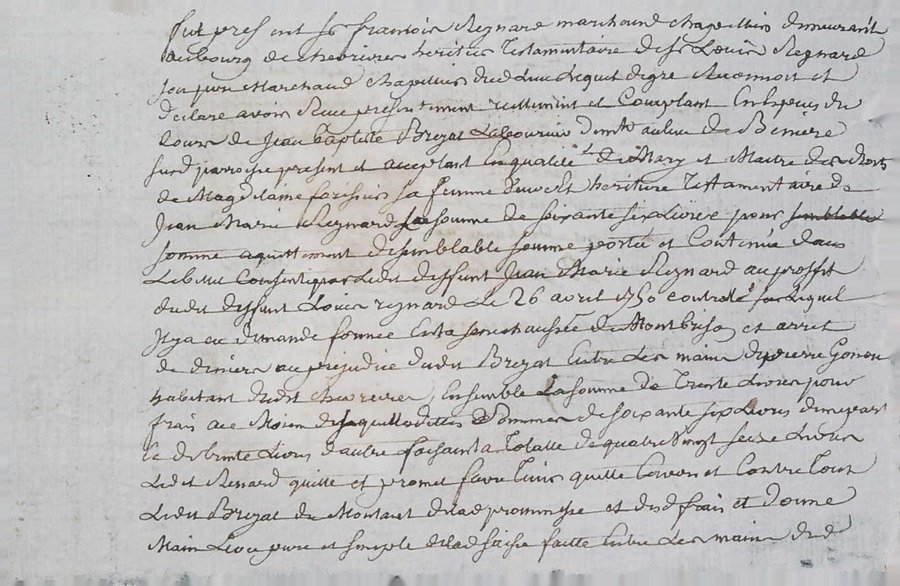 fut present sr francois Regnard marchand chapellier demeurant
au bourg de chevrieres heritier Testamentaire de sr Louis Regnard
son pere Marchand chapellier dud lieu lequel de gré Reconnoit et
declare avoir Receu presentement reellement et Comptant En Especes du
Cours de Jean baptiste Breyat Laboureur dmt au lieu de
sur d parroisse present et acceptant En qualité de Mary et Maitre des droits
de Magdelaine sa femme heritiere Testamentaire de
Jean Marie Regnard La somme de soixante six Livres pour semblable
somme aquittement de semblable somme portée et Contenue dans
Le billet Consenti par Ledit deffunt Jean Marie Regnard au proffit
dudit deffunt Louis regnard Le 26 avril 1750 controllé sur Lequel
Il y a eu demande formée En la senechaussée de Montbrison et arret
de deniers au prejudice dudit Breyat Entre Les mains de pierre
habitant dudit chevrieres, Ensemble La somme de Trente Livres pour
frais au Moien desquelles dittes sommes de soixante six Livres d'une part
et de trente Livres d'autre faisant a Totalle de quatre vingt seize Livres
Ledit Renard quitte et promet faire Tenir quitte Envers et Contre Tous
Ledit Breyat du Montant de lad promesse et desd frais et donne
Main Levée pure et simple de lad saisie faitte Entre Les mains dud